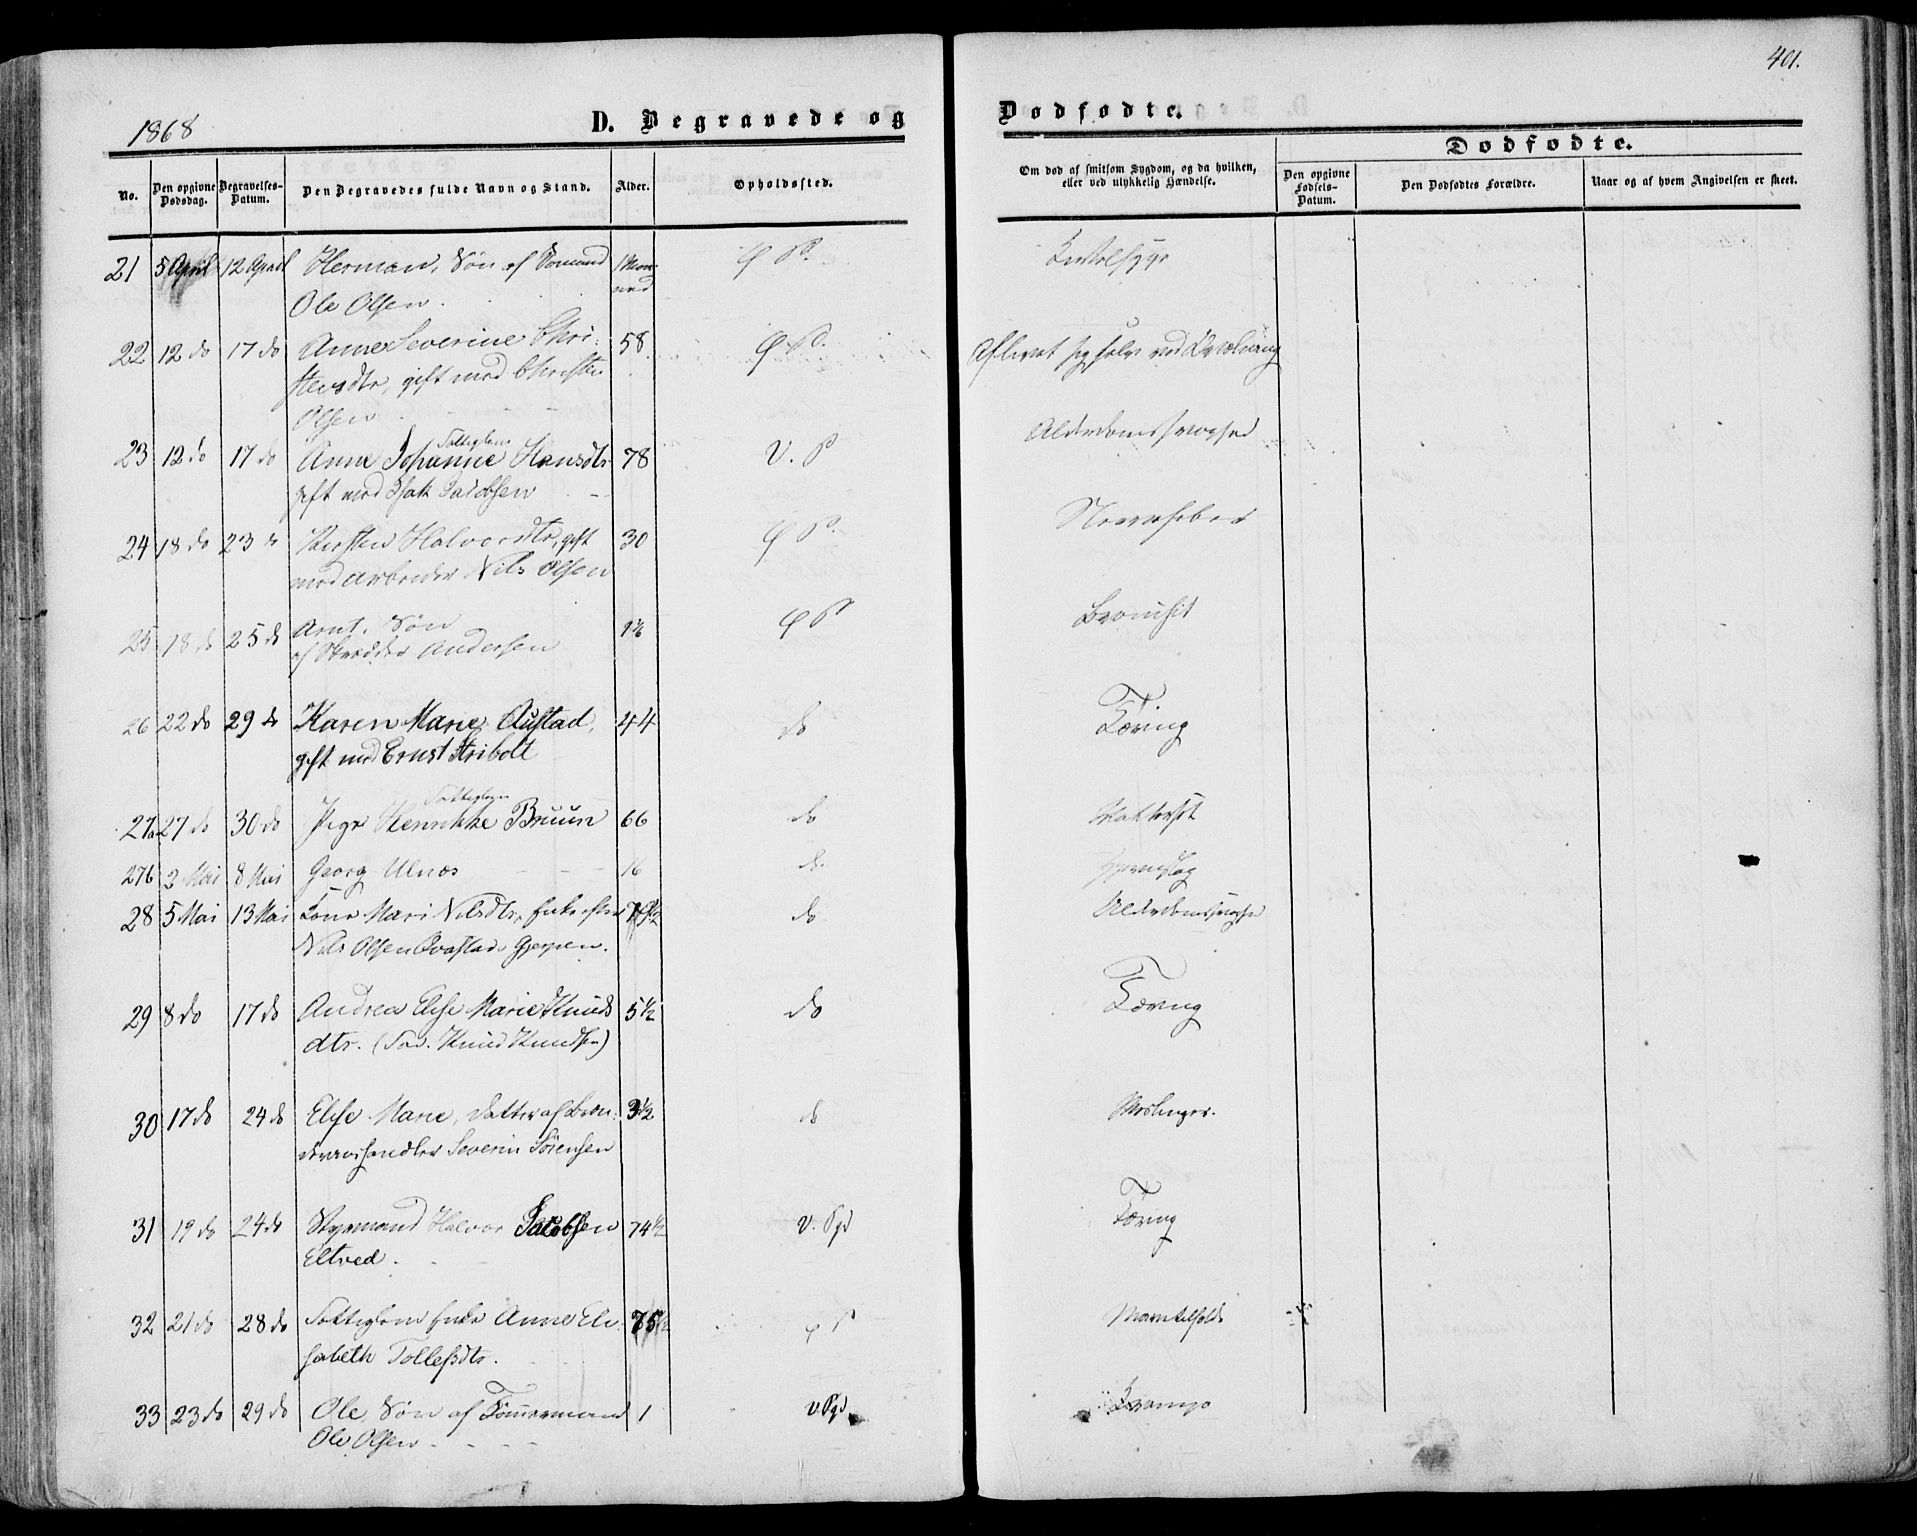 401.
1868
D. Begravede og Dødfødte.
Dødfødte.
No.
Den opgivne Dødsdag.
Begravelses-Datum.
Den Begravedes fulde Navn og Stand.
Alder.
Opholdssted.
Om død af smitsom Sygdom, og da hvilken,
eller ved ulykkelig Hændelse.
Den opgivne Fødsels-Datum.
Den Dødfødtes Forældre.
Naar og af hvem Angivelsen er skeet.
21 5 April 12 April Herman, Søn af Sømand 1 Maa-
Ole Olsen. ned
22 12 do 17 do Anne Severine Chri- 58 Aflivet sig selv ved Qvælning
stensdtr, gift med Christen
Olsen
23 12 do 17 do Anne Johanne Hansdtr 78 V. P Alderdomssvaghed
Fattiglem
gift med Isak Jacobsen
24 18 do 23 do Kirsten Halvorsdtr, gift 30 Nervefeber
med Arbeider Nils Olsen
25 18 do 25 do Arnt, Søn Bronchit
af Skrædder Andersen
26 22 do 29 do Karen Marie Austad, 44 do Tæring
gift med Ernst Stribolt
27a 27 do 30 do Pige Henrikke Bruun 66 do
Fattiglem
27b 3 Mai 8 Mai Georg Ulnæs 16 do
28 5 Mai 13 Mai Tone Mari Nilsdtr, Enke efter do Alderdomssvaghed
Nils Olsen Gjerpen.
29 8 do 17 do Andrea Elise Marie Knuds 5½ do Tæring
dtr. (Fad. Knud Knudsen)
30 17 do 24 do Elise Marie, Datter af Bræn- 3½ do Meslinger.
devinshandler Severin Sørensen
31 19 do 24 do Styrmand Halvor Jacobsen 74½ V. Pgd Tæring
Eltved.
32 21 do 28 do Fattiglem Enke Anne Eli- 75½
sabeth Tollefsdtr.
33 23 do 29 do Ole, Søn af Tømmermand 1 V Pgd Krampe
Ole Olsen